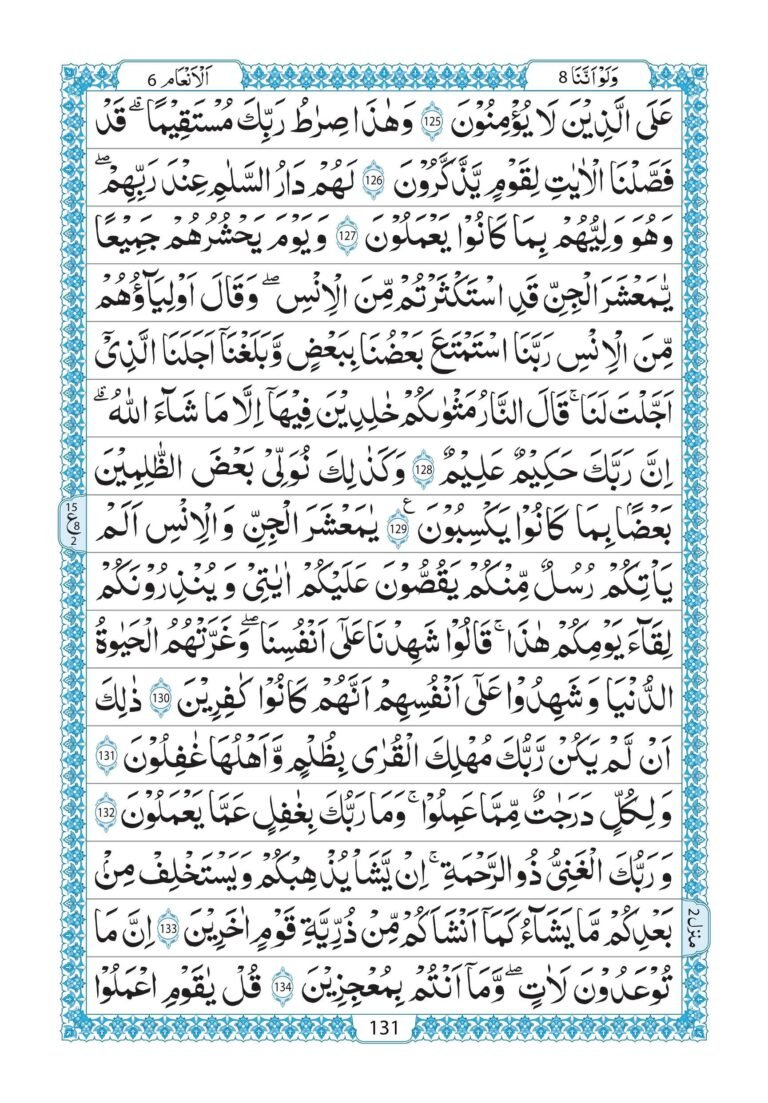 وَلَوْ اَنَّنَا 8
اَلْاَنْعَام 6
عَلَى الَّذِيْنَ لَا يُؤْمِنُوْنَ 125 وَهٰذَا صِرَاطُ رَبِّكَ مُسْتَقِيْمًا ؕ قَدْ
فَصَّلْنَا الْاٰيٰتِ لِقَوْمٍ يَّذَّكَّرُوْنَ 126 لَهُمْ دَارُ السَّلٰمِ عِنْدَ رَبِّهِمْ
وَهُوَ وَلِيُّهُمْ بِمَا كَانُوْا يَعْمَلُوْنَ 127 وَيَوْمَ يَحْشُرُهُمْ جَمِيْعًا
يٰمَعْشَرَ الْجِنِّ قَدِ اسْتَكْثَرْتُمْ مِّنَ الْاِنْسِ ۖ وَقَالَ اَوْلِيَآؤُهُمْ
مِّنَ الْاِنْسِ رَبَّنَا اسْتَمْتَعَ بَعْضُنَا بِبَعْضٍ وَّبَلَغْنَاۤ اَجَلَنَا الَّذِيْۤ
اَجَّلْتَ لَنَا ۚ قَالَ النَّارُ مَثْوٰىكُمْ خٰلِدِيْنَ فِيْهَاۤ اِلَّا مَا شَآءَ اللّٰهُ
اِنَّ رَبَّكَ حَكِيْمٌ عَلِيْمٌ 128 وَكَذٰلِكَ نُوَلِّيْ بَعْضَ الظّٰلِمِيْنَ
بَعْضًۢا بِمَا كَانُوْا يَكْسِبُوْنَ 129 ع يٰمَعْشَرَ الْجِنِّ وَالْاِنْسِ اَلَمْ
15 ع 8 2
يَاْتِكُمْ رُسُلٌ مِّنْكُمْ يَقُصُّوْنَ عَلَيْكُمْ اٰيٰتِيْ وَيُنْذِرُوْنَكُمْ
لِقَآءَ يَوْمِكُمْ هٰذَا ۚ قَالُوْا شَهِدْنَا عَلٰۤى اَنْفُسِنَا ۖ وَغَرَّتْهُمُ الْحَيٰوةُ
الدُّنْيَا وَشَهِدُوْا عَلٰۤى اَنْفُسِهِمْ اَنَّهُمْ كَانُوْا كٰفِرِيْنَ 130 ذٰلِكَ
اَنْ لَّمْ يَكُنْ رَّبُّكَ مُهْلِكَ الْقُرٰى بِظُلْمٍ وَّاَهْلُهَا غٰفِلُوْنَ 131
وَلِكُلٍّ دَرَجٰتٌ مِّمَّا عَمِلُوْا ۚ وَمَا رَبُّكَ بِغٰفِلٍ عَمَّا يَعْمَلُوْنَ 132
وَرَبُّكَ الْغَنِيُّ ذُو الرَّحْمَةِ ۚ اِنْ يَّشَاْ يُذْهِبْكُمْ وَيَسْتَخْلِفْ مِنْۢ
بَعْدِكُمْ مَّا يَشَآءُ كَمَاۤ اَنْشَاَكُمْ مِّنْ ذُرِّيَّةِ قَوْمٍ اٰخَرِيْنَ 133 اِنَّ مَا
منزل 2
تُوْعَدُوْنَ لَاٰتٍ ۖ وَّمَاۤ اَنْتُمْ بِمُعْجِزِيْنَ 134 قُلْ يٰقَوْمِ اعْمَلُوْا
131